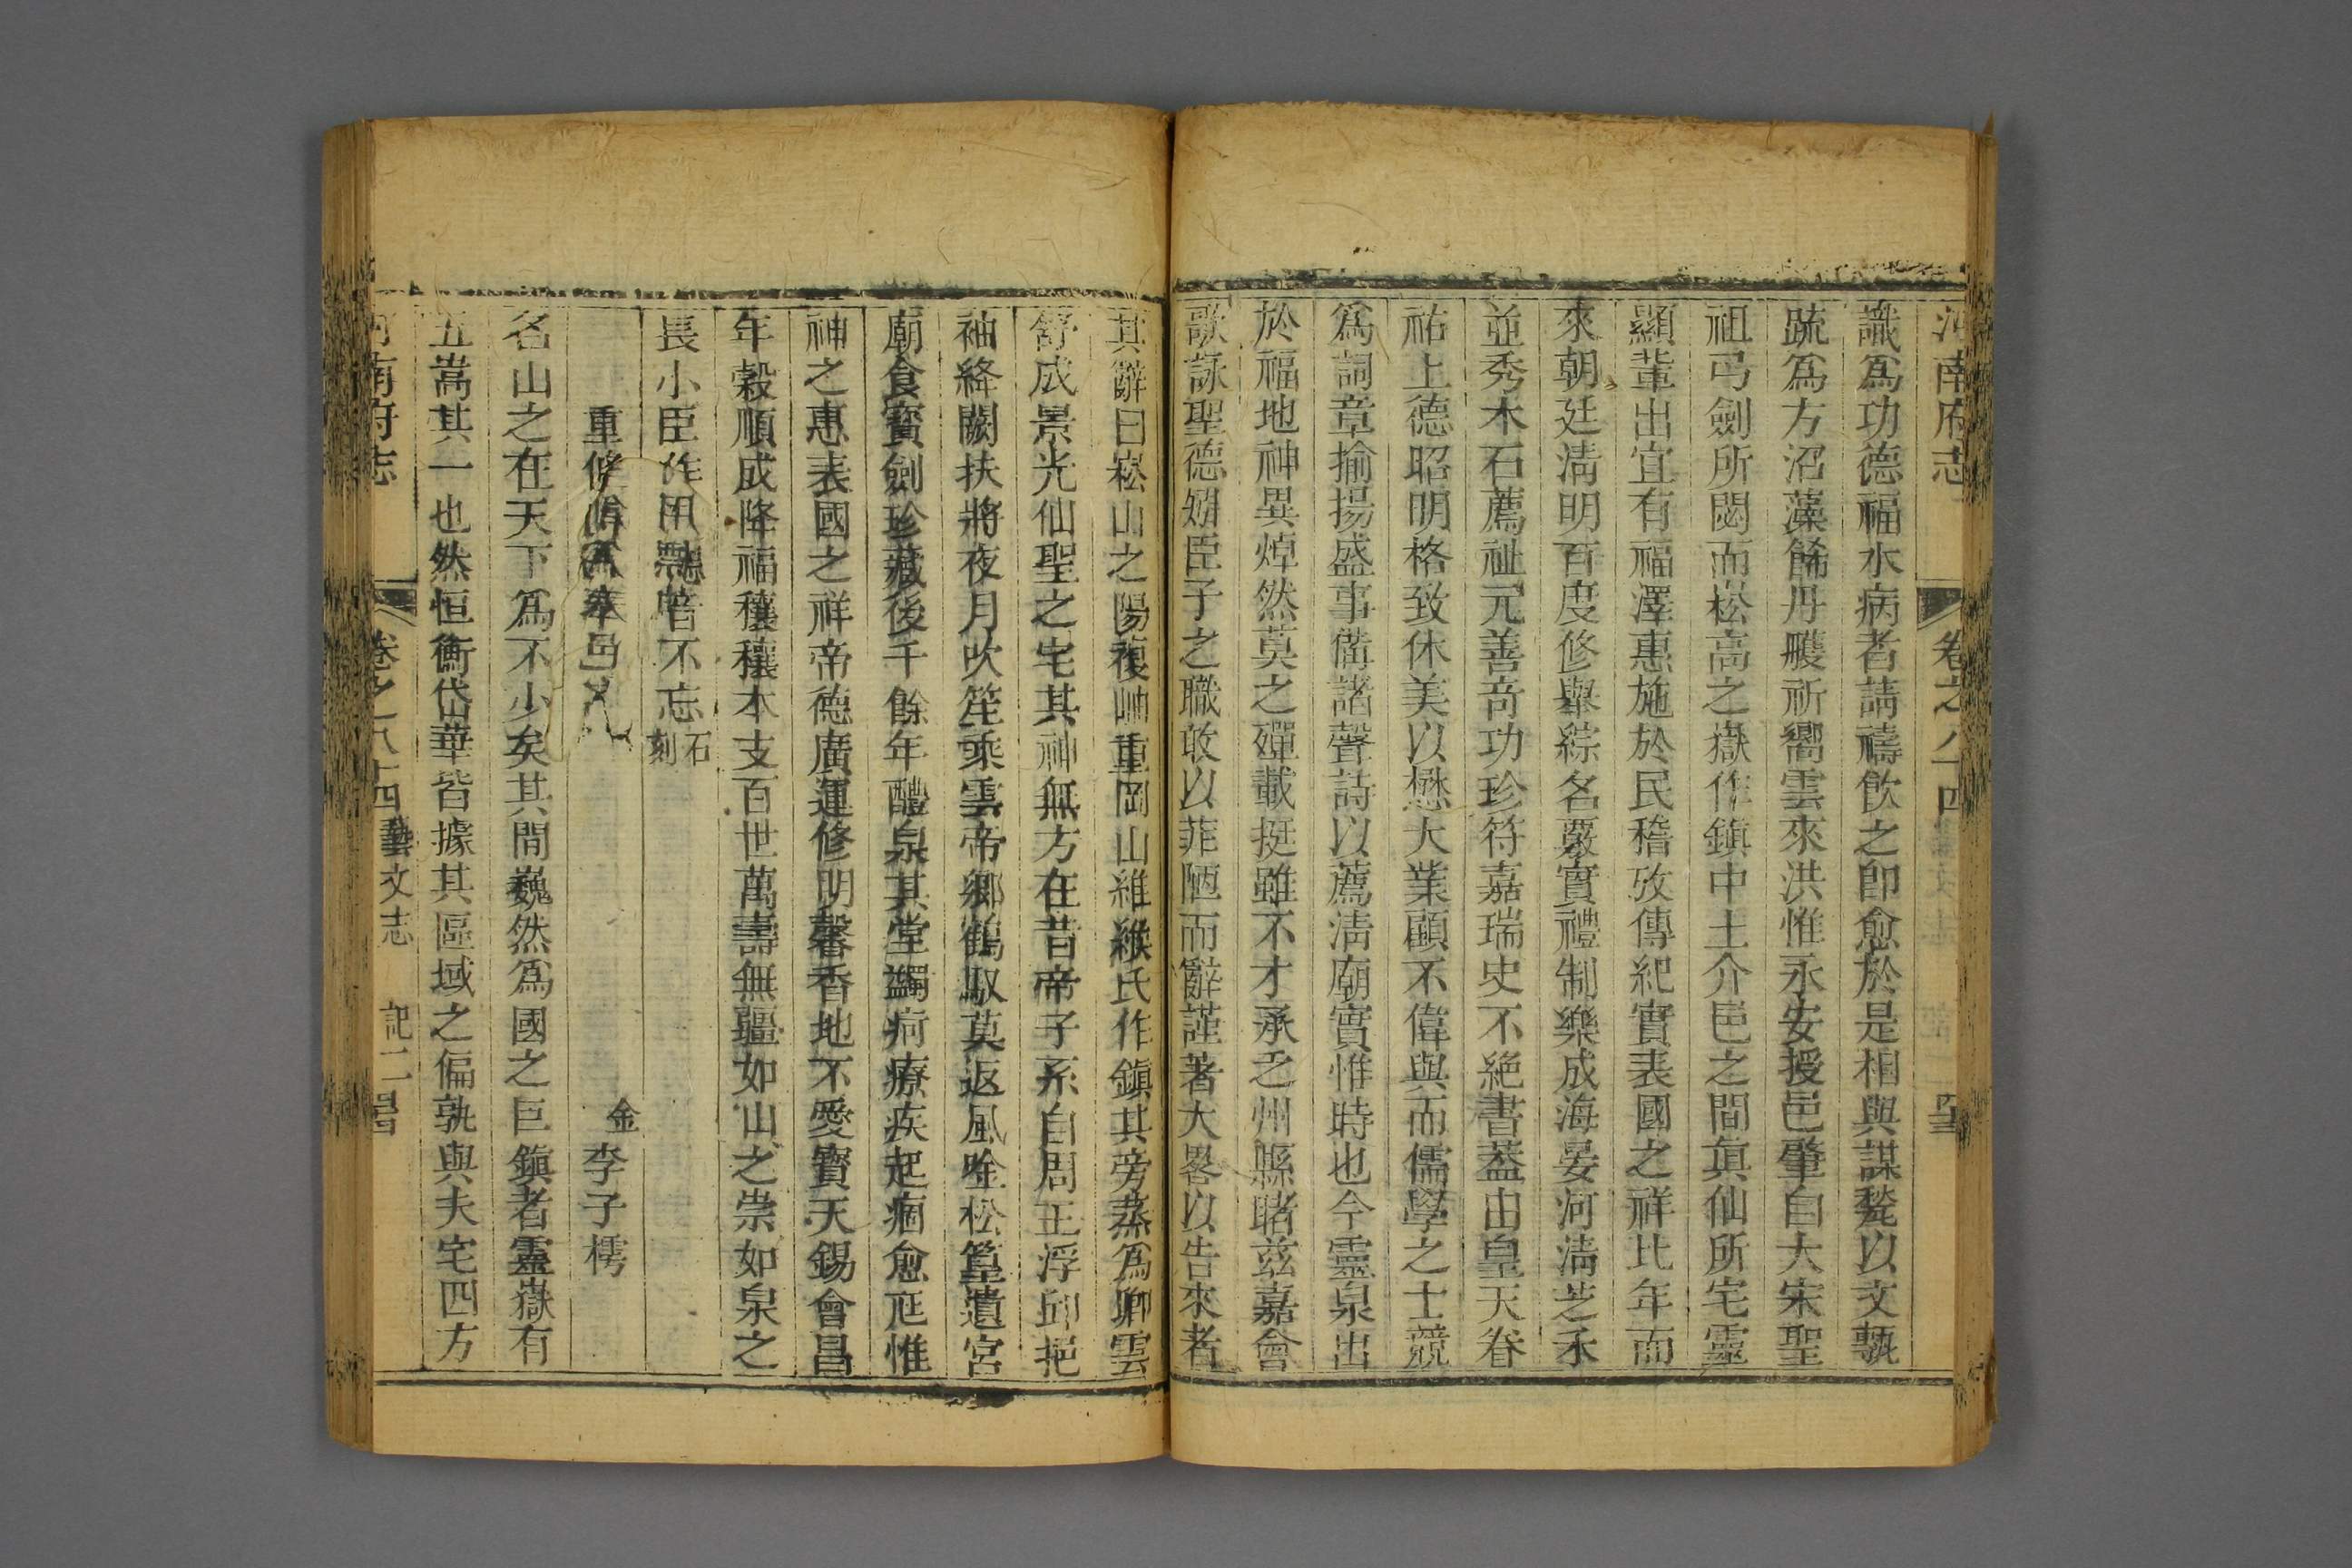 河南府志 卷之八十四
識爲功德福水病者請禱飲之卽愈於是相與謀甃以文甎
疏爲方沼藻餙丹雘祈嚮雲來洪惟永安授邑肇自大宋聖
祖弓劍所閟而崧高之嶽作鎮中土介邑之間眞仙所宅靈
顯葷出宜有福澤惠施於民稽攷傳紀實表國之祥比年而
來朝廷淸明百度修舉綜名覈實禮制樂成海晏河淸芝禾
並秀木石薦祉元善奇功珍符嘉瑞史不絶書葢由皇天眷
祐上德昭明格致休美以懋大業顧不偉與而儒學之士競
爲詞章揄揚盛事備諸聲詩以薦淸廟實惟時也今靈泉出
於福地神異焯然莫之殫載挺雖不才承乏州縣睹茲嘉會
歌詠聖德𡠉臣子之職敢以菲陋而辭謹著大畧以告來者
其辭曰崧山之陽複岫重岡山維緱氏作鎮其旁蒸爲卿雲
舒成景光仙聖之宅其神無方在昔帝子系自周王浮邱挹
袖絳闕扶將夜月吹笙乘雲帝鄉鶴馭莫返風唫松篁遺宮
廟食寶劍珍藏後千餘年醴泉其堂蠲疴療疾起痼愈尫惟
神之惠表國之祥帝德廣運修明馨香地不愛寶天錫會昌
年穀順成降福穰穰本支百世萬壽無疆如山之崇如泉之
長小臣作用 不忘石刻
重修 邑
金李子樗
名山之在天下爲不少矣其間巍然爲國之巨鎮者靈嶽有
五嵩其一也然恒衡岱華皆據其區域之偏孰與夫宅四方
河南府志 卷之八十四藝文志 記二